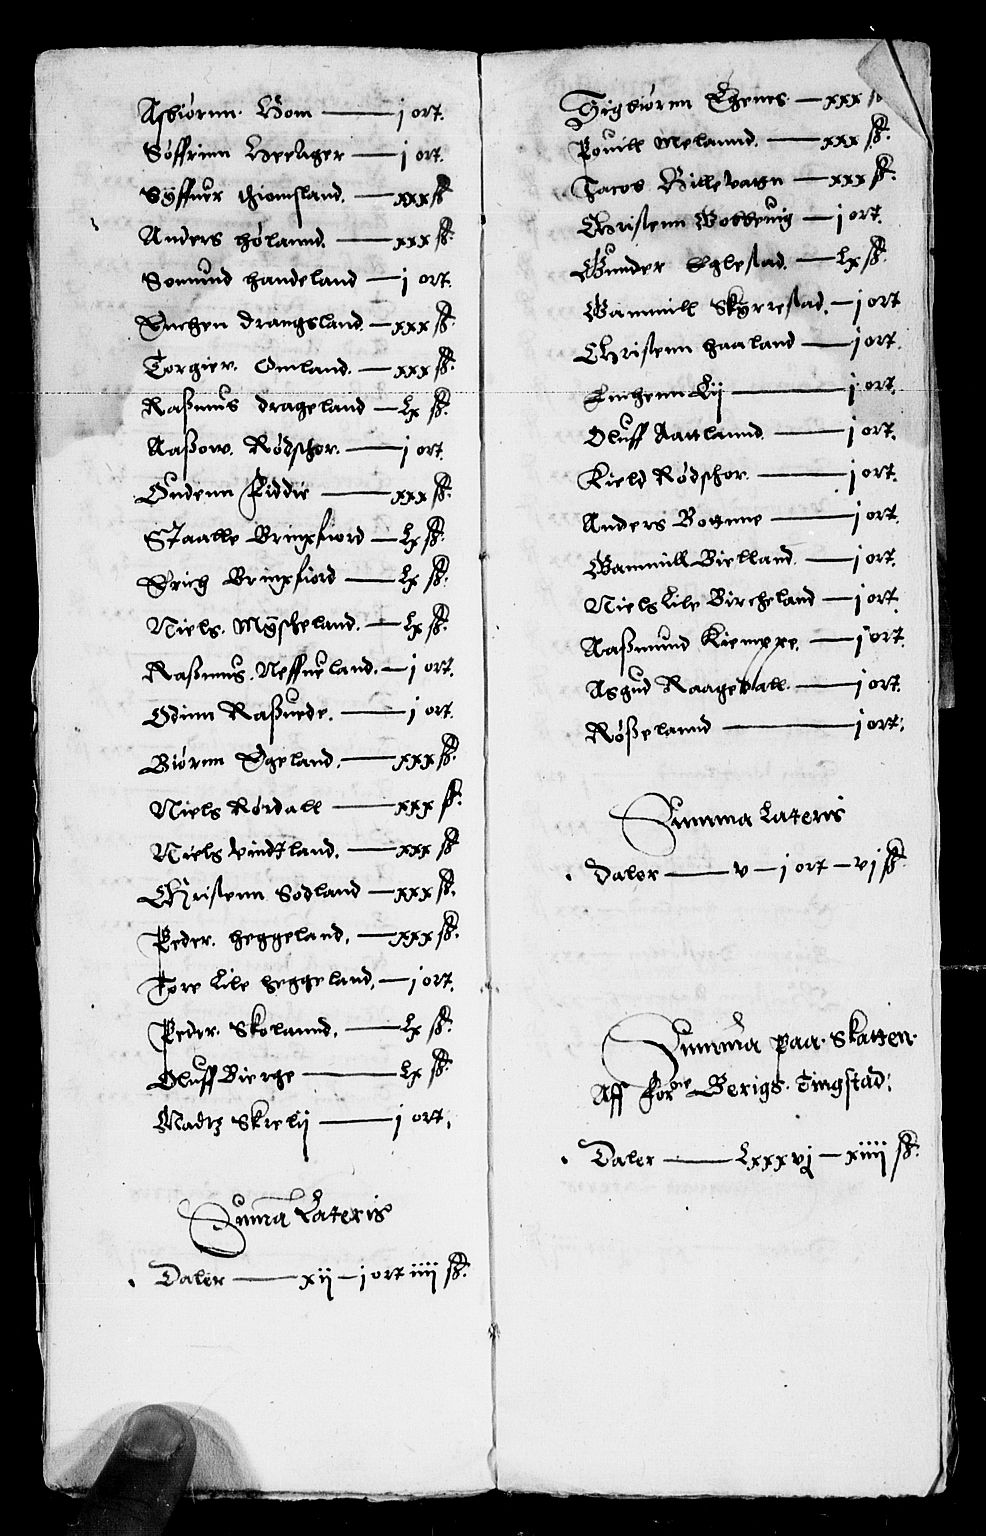 Asbiørnn Vom — j ort.
Søffrinn Heelager — j ort.
Syffuer Thiomsland. — xxx ß
Anders Høland. — xxx ß.
Somund Handeland — j ort.
Enchen Drangsland — xxx ß.
Torgier. Omland. — xxx ß.
Raßmus Drageland — Lx ß.
Aaßow. Rødschor. — j ort.
Oudenn Fiddie — xxx ß.
Staalle Brinxfiord — Lx ß.
Erich Brinxfiord — Lx ß.
Niels. Myscheland. — Lx ß.
Raßmus. Neffueland. — j ort.
Odinn Raßuede. — j ort.
Biørnn Egeland. — xxx ß.
Niels Rørdall — xxx ß.
Niels Vindtland. — xxx ß
Christenn Sodland — xxx ß.
Peder. Heggeland. — xxx ß.
Tore Lile Heggeland. — j ort.
Peder. Skolannd. — Lx ß.
Oluff Bierge — Lx ß.
Madtz Skrelij — j ort.
Summa Lateris
Daler — xij — j ort iiij ß.
Sigbiørnn Egenes — xxx
Pouill Melannd. — xxx ß.
Jacob Billevagn — xxx ß.
Christenn Vobbuig — j ort.
Gunder Eglestad. — Lx ß.
Gammill Skyrrestad. — j ort
Christenn Haaland — j ort.
Enchenn Lij — j ort.
Oluff Aattlannd — j ort.
Kield Rødschor. — j ort.
Anders Bottnne — j ort.
Gammill Bielland. — j ort.
Niels Lile Bircheland — j ort.
Aaßmund Kiemppe. — j ort.
Asgud Raageuall. — j ort.
Røßelannd — j ort.
Summa Lateris
Daler — v — j ort — vj ß.
Summa paa Skatten.
Aff for:ne Berigs Tingstad:
Daler — Lxxxvj — xiiij ß.